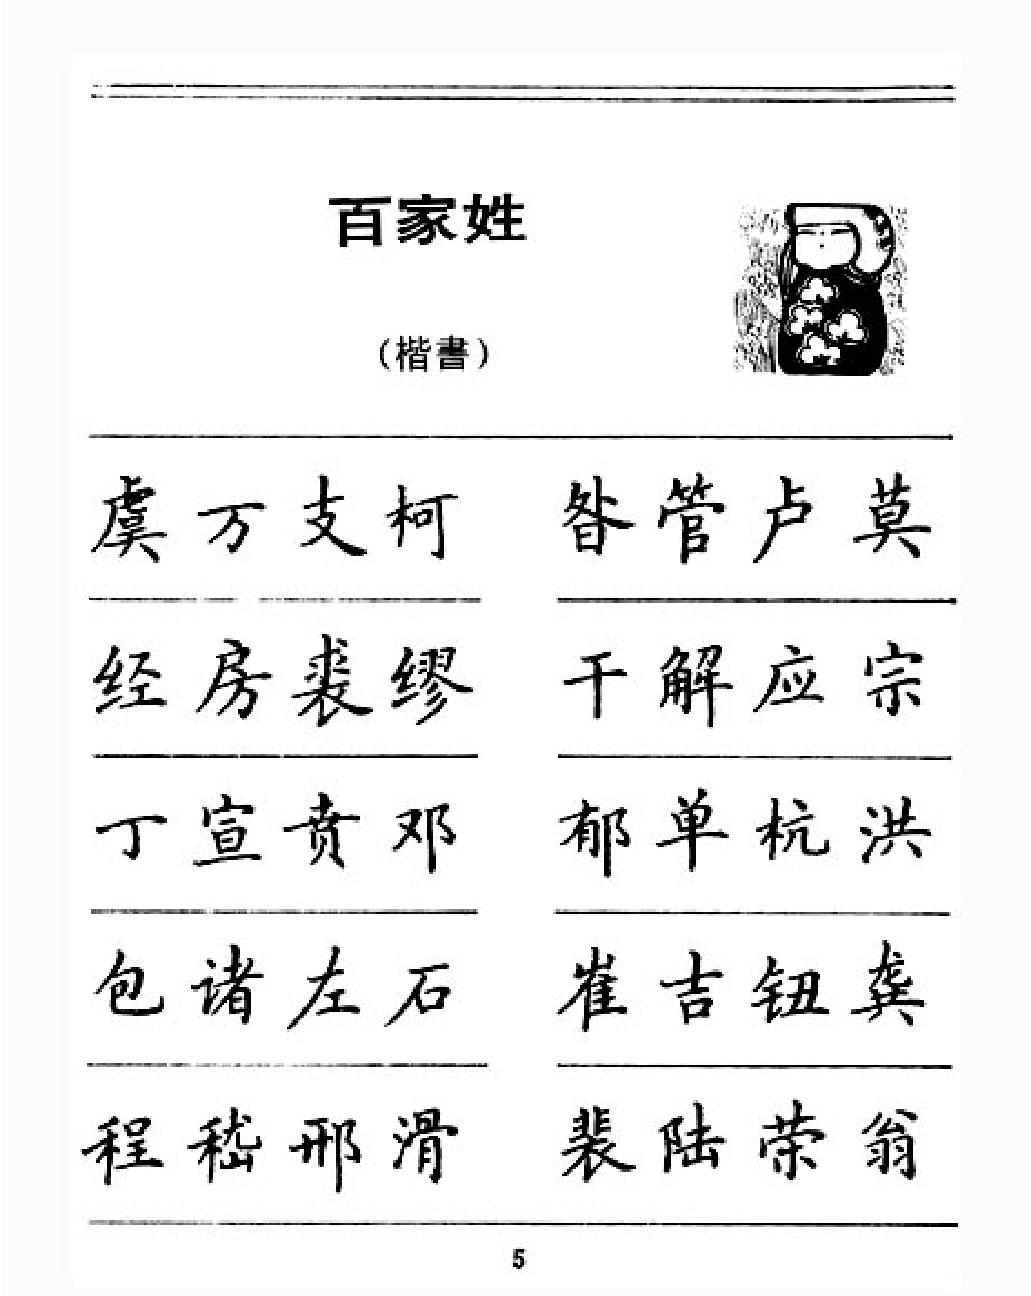 百家姓
(楷書)
虞万支柯 昝管卢莫
经房裘缪 干解应宗
丁宣贲邓 郁单杭洪
包诸左石 崔吉钮龚
程嵇邢滑 裴陆荣翁
5